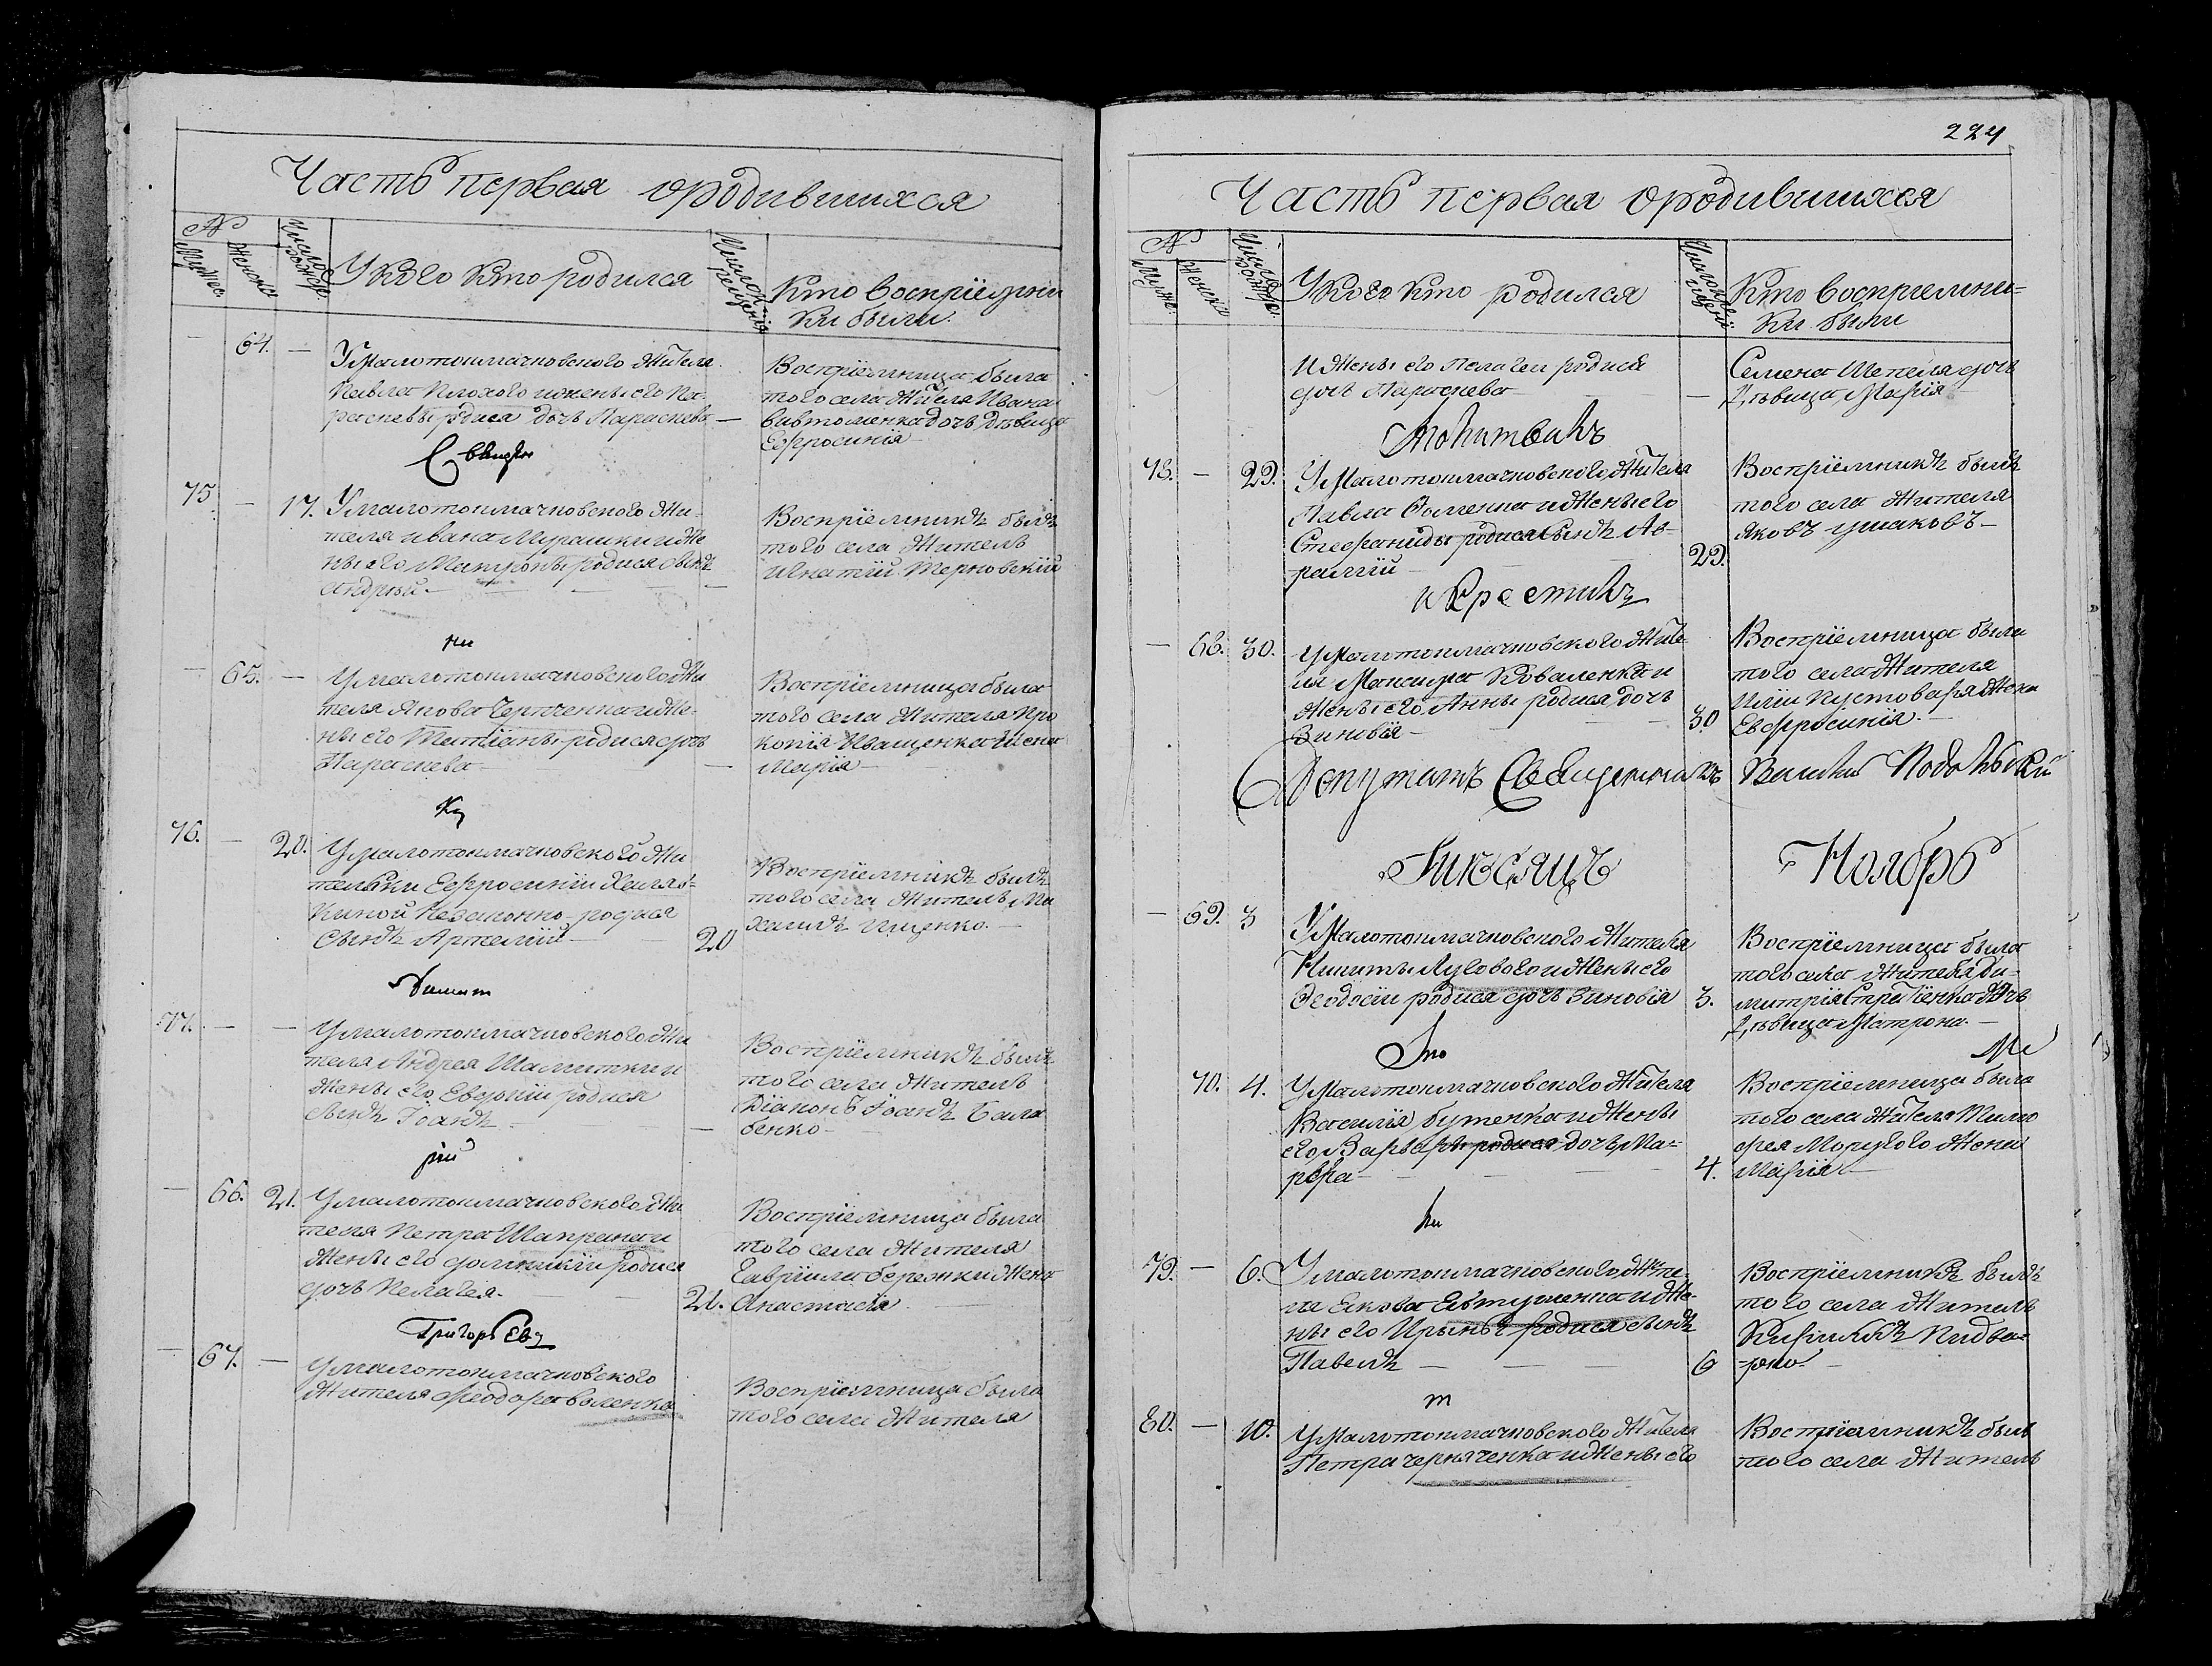 Часть первая ородившихся
№
Мужес.
Женска
Число рожде.
У кого кто родился
Число крещения
Кто воспріемни
ки были.
64. —
Умалотокмачковского жителя
Павла Плохого ижены его Па-
раскевы родися дочь Параскева —
Воспріемница была
того села жителя Ивана
дочь девица
Ефросинія
75 — 17.
Умалотокмачковского жи-
теля Ивана Мурашки иже
ны его Матроны родися сынъ
Андрый —
Воспріемникъ былъ
того села житель
Игнатій Терновскій
ни
— 65. —
Умалотокмачковского жи
теля Якова иже-
ны его Татіаны родися дочь
Параскева
Воспріемница была
того села жителя Про
копія Иващенка жена
Марія
76. — 20.
Умалотокмачковского жи
тельки Ефросиніи
Незаконно родися
Сынъ Артемій 20
Воспріемникъ былъ
того села житель Ми
хаилъ Ищенко. —
77. — —
Умалотокмачковского жи
теля Андрея
жены его родися
сынъ Іоанъ —
Воспріемникъ былъ
того села житель
Діяконъ Іоанъ Бала
бенко —
рій
— 66. 21.
Умалотокмачковского жи
теля Петра Шапрана и
жены его родися
дочь Пелагея. — 21.
Воспріемница была
того села жителя
Гавріила Бережки жена
Анастасія
Григорьевъ
— 67. —
Умалотокмачковского
жителя Феодора
Воспріемница была
того села жителя
224
Часть первая ородившихся
№
Мужс.
Женска
Число рожде.
У кого кто родился
Кто воспріемни-
ки были
ижены его Пелагеи родися
дочь Параскева —
Семена Шепеля дочь
Дѣвица Марія
Молитвилъ
78. — 29.
Умалотокмачковского жителя
Павла ижены его
Стефаниды родися сынъ Ав-
раамій 29.
Воспріемникъ былъ
того села жителя
Яковъ Ушаковъ —
и Крестилъ
— 68. 30.
Умалотокмачковского жите-
ля Максима Коваленка и
жены его Анны родися дочь
Зиновія — 30
Воспріемница была
того села жителя
Иліи Пустоваря жена
Евфросинія. —
Депутатъ Священникъ Василій Подольскій
Мѣсяцъ Ноябрь
— 69. 3
Умалотокмачковского жителя
Никиты Лугового ижены его
Феодосіи родися дочь Зиновія 3.
Воспріемница была
того села жителя Ди-
митрія дочь
Дѣвица Матрона. —
Мо
70. 4.
Умалотокмачковского жителя
Василія Бутенка ижены
его Варвары родися дочь Ма-
рѳра — 4.
Воспріемница была
того села жителя Тимо
фея жена
Марія —
ли
79. — 6.
Умалотокмачковского жите
ля Евтушенка иже-
ны его Ирины родися сынъ
Павелъ — 6
Воспріемникъ былъ
того села житель
Кирилъ
т
80. — 10.
Умалотокмачковского жителя
Петра Черняченка ижены его
Воспріемникъ былъ
того села житель